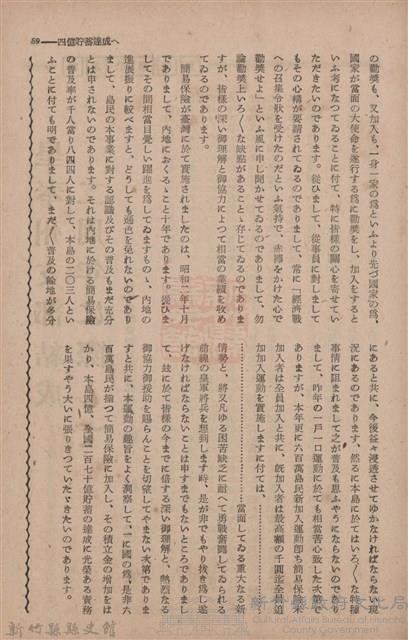 59──四億貯蓄達成へ
の勸奬も、又加入も、一身一家の爲といふより先づ國家の爲、
國家が當面の大使命を遂行する爲に勸奬をし、加入をすると
いふ考になつてゐることに付て、特に皆様の關心を寄せてい
ただきたいのであります。從ひまして、從事員に對しまして
もその心構が要請されてゐるのでありまして、常に「經濟戰
への召集令狀を受けたのだといふ氣持で、赤襷をかけた心で
勸奬せよ」といふ風に申し聞かせてゐるのでありまして、勿
論勸奬上いろ〱な缺點があることゝ存じてゐるのでありま
すが、皆様の深い御理解と御協力によつて相當の業績を收め
てゐるのであります。
簡易保險が臺灣に於て實施されましたのは、昭和二年十月
でありまして、內地におくるゝこと十年であります。從ひま
してその間相當目覺しい躍進を爲してゐますものゝ、內地の
進展振りに較べますと、どうしても遜色を見れないのであり
まして、島民の本事業に對する認識及びその普及もまだ充分
とは申されないのであります。それは內地に於ける簡易保險
の普及率が千人當り八四四人に對して、本島の二〇三人とい
ふことに付ても明でありまして、まだ〱普及の餘地が多分
にあると共に、今後益々浸透させてゆかなければならない現
況にあるのであります。然るに本島に於てはいろ〱な特種
事情に阻まれまして之が普及も思ふやうにならないのであり
まして、昨年の一戶一口運動に於ても相當苦心致した次第で
ありますが、本年更に六百萬島民新加入運動卽ち簡易保險未
加入者は全員加入と共に、旣加入者は最高額の千圓迄全額追
加加入運動を實施しますに付ては、
當面してゐる重大なる新
情勢と、將又凡ゆる困苦缺乏に耐へて勇戰奮鬪してゐられる
前線の皇軍將兵を想到します時、是が非でもやり拔き爲し遂
げなければならないことは申すまでもないところでありまし
て、玆に於て皆様の今までに倍する深い御理解と、熱烈なる
御協力御援助を賜らんことを切望してやまない次第でありま
すと共に、本運動の趣旨をよく洞察して、一に國の爲、是非六
百萬島民が擧つて簡易保險に加入し、その積立金の增加をは
かり、本島四億、全國二百七十億貯蓄の達成に光榮ある責務
を果すやう大いに張りきつていたゞきたいのであります。
新竹縣縣史館
新竹縣政府文化局
Cultural Affairs Bureau of Hsinchu
County Government